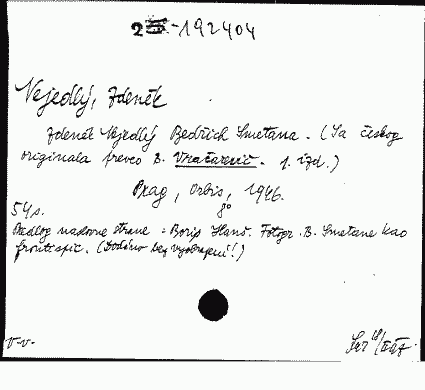 2 -192404
Nejedlý, Zdeněk
Zdeněk Nejedlý Bedřich Smetana. (Sa českog
originala preveo B. Vračarević. 1. izd.)
Prag, Orbis, 1946.
8°
54 s.
Predlog naslovne strane: Boris Hanš. Fotogr. B. Smetane kao
frontispic. (Dodáno bez vyobrazení!)
V-v.